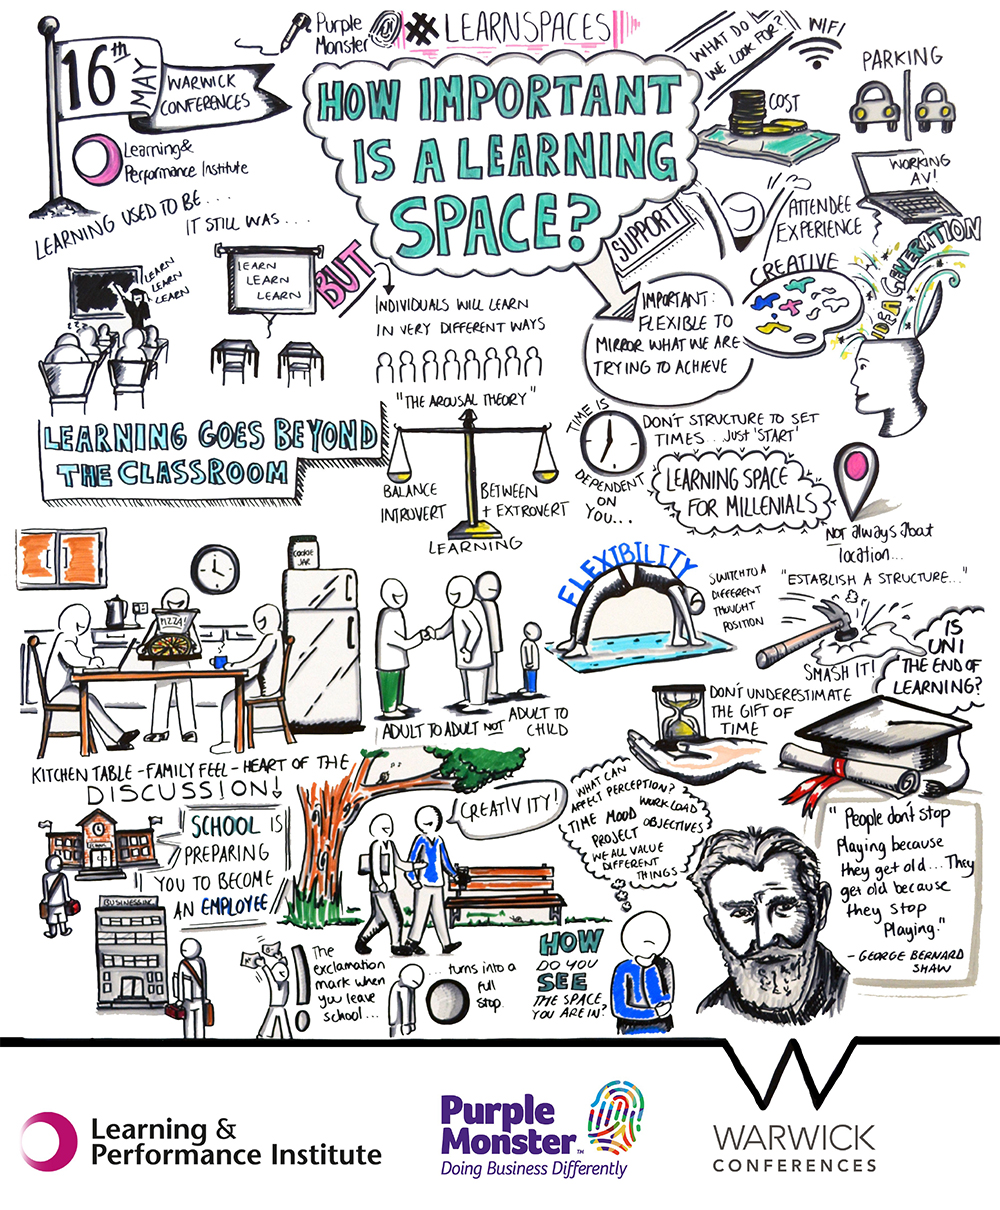 16th
MAY
WARWICK
CONFERENCES
Learning &
Performance Institute
Purple
Monster
#LEARNSPACES
HOW IMPORTANT
IS A LEARNING
SPACE?
WHAT DO
WE LOOK FOR?
WIFI
PARKING
COST
WORKING
AV!
SUPPORT
ATTENDEE
EXPERIENCE
CREATIVE
IDEA GENERATION
LEARNING USED TO BE . . . .
IT STILL WAS . . . .
LEARN
LEARN
LEARN
zzz
LEARN
LEARN
LEARN
BUT
INDIVIDUALS WILL LEARN
IN VERY DIFFERENT WAYS
IMPORTANT:
FLEXIBLE TO
MIRROR WHAT WE ARE
TRYING TO ACHIEVE
"THE AROUSAL THEORY"
BALANCE
INTROVERT
BETWEEN
+ EXTROVERT
LEARNING
TIME IS
DEPENDENT
ON
YOU...
DON'T STRUCTURE TO SET
TIMES... JUST 'START'
LEARNING SPACE
FOR MILLENIALS
NOT always about
location...
LEARNING GOES BEYOND
THE CLASSROOM
COOKIE
JAR
PIZZA!
KITCHEN TABLE - FAMILY FEEL - HEART OF THE
DISCUSSION!
ADULT TO ADULT NOT ADULT TO
CHILD
FLEXIBILITY
SWITCH TO A
DIFFERENT
THOUGHT
POSITION
"ESTABLISH A STRUCTURE..."
SMASH IT!
IS
UNI
THE END OF
LEARNING?
DON'T UNDERESTIMATE
THE GIFT OF
TIME
SCHOOL IS
PREPARING
YOU TO BECOME
AN EMPLOYEE
BUSINESS INC
CREATIVITY!
WHAT CAN
AFFECT PERCEPTION?
WORKLOAD
TIME MOOD OBJECTIVES
PROJECT
WE ALL VALUE
DIFFERENT
THINGS
HOW
DO YOU
SEE
THE SPACE,
YOU ARE IN?
The
exclamation
mark when
you leave
school...
... turns into a
full
stop.
"People don't stop
Playing because
they get old... They
get old because
they stop
Playing."
- GEORGE BERNARD
SHAW
Learning &
Performance Institute
Purple
Monster™
Doing Business Differently
WARWICK
CONFERENCES